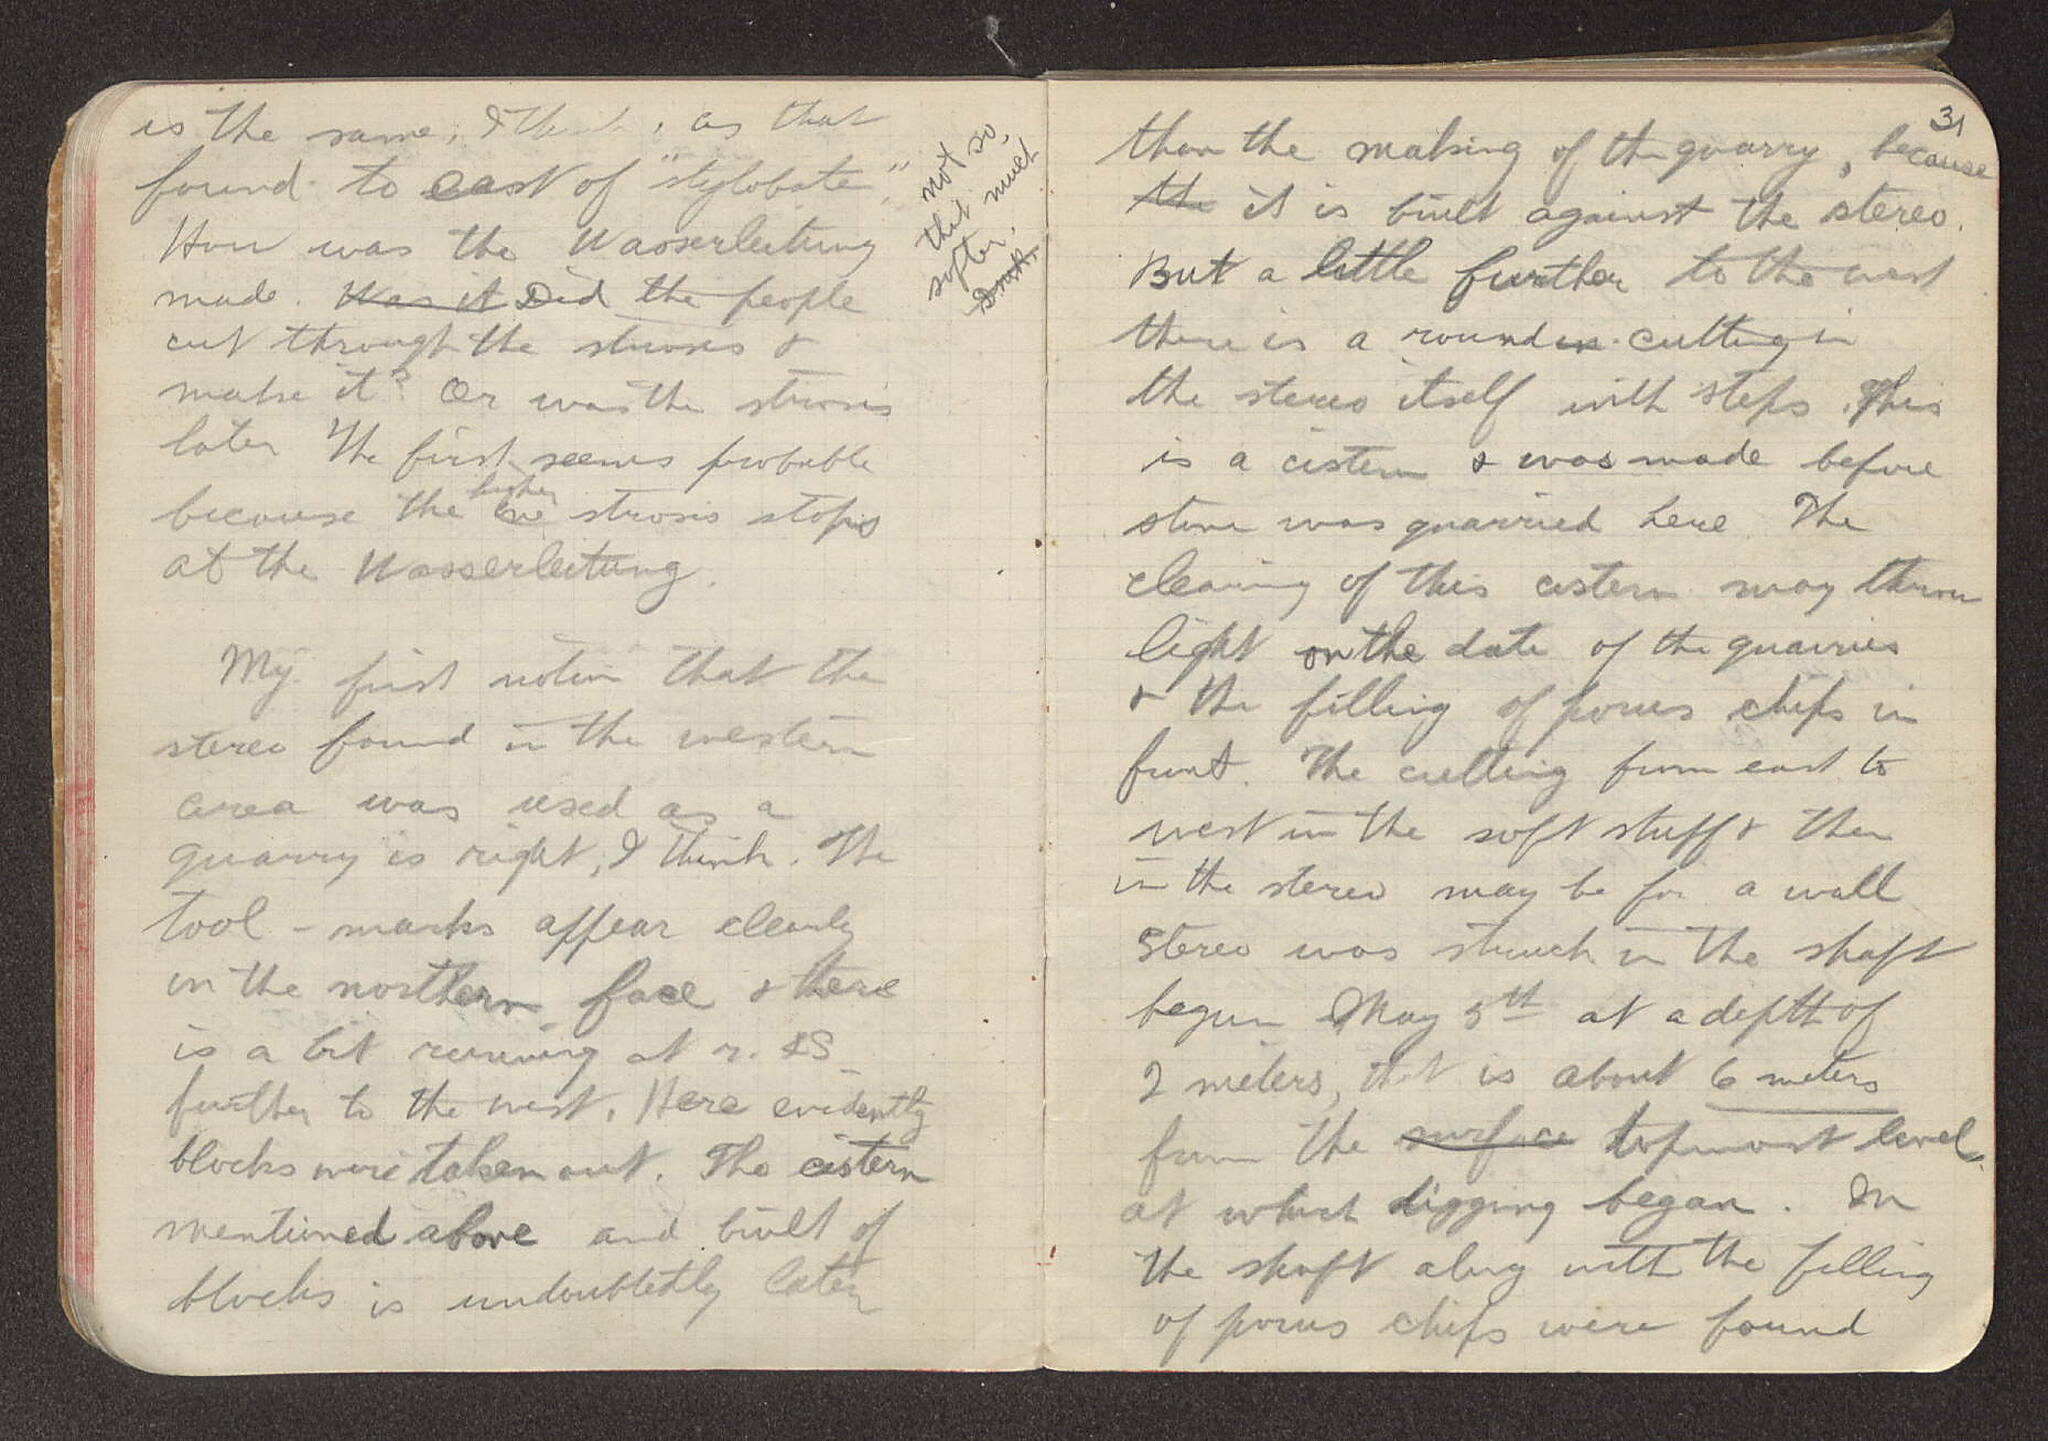 is the same, I think, as that
found to east of "stylobate".
How was the Wasserleitung
made. Was it Did the people
cut through the strosis &
make it? Or was the strosis
later The first seems probable
because the higher strosis stops
at the Wasserleitung.
not so,
this much
softer.
My first notion that the
stereo found in the western
area was used as a
quarry is right, I think. The
tool-marks appear clearly
in the northern face & there
is a bit running at r. ∠S
further to the west. Here evidently
blocks were taken out. The cistern
mentioned above and built of
blocks is undoubtedly later
31
than the making of the quarry, because
the it is built against the stereo.
But a little further to the west
there is a round cutting in
the stereo itself with steps. This
is a cistern & was made before
stone was quarried here The
clearing of this cistern may throw
light on the date of the quarries
& the filling of poros chips in
front. The cutting from east to
west in the soft stuff & then
in the stereo may be for a wall
Stereo was struck in the shaft
begun May 5th at a depth of
2 meters, that is about 6 meters
from the surface topmost level
at which digging began. In
the shaft along with the filling
of poros chips were found